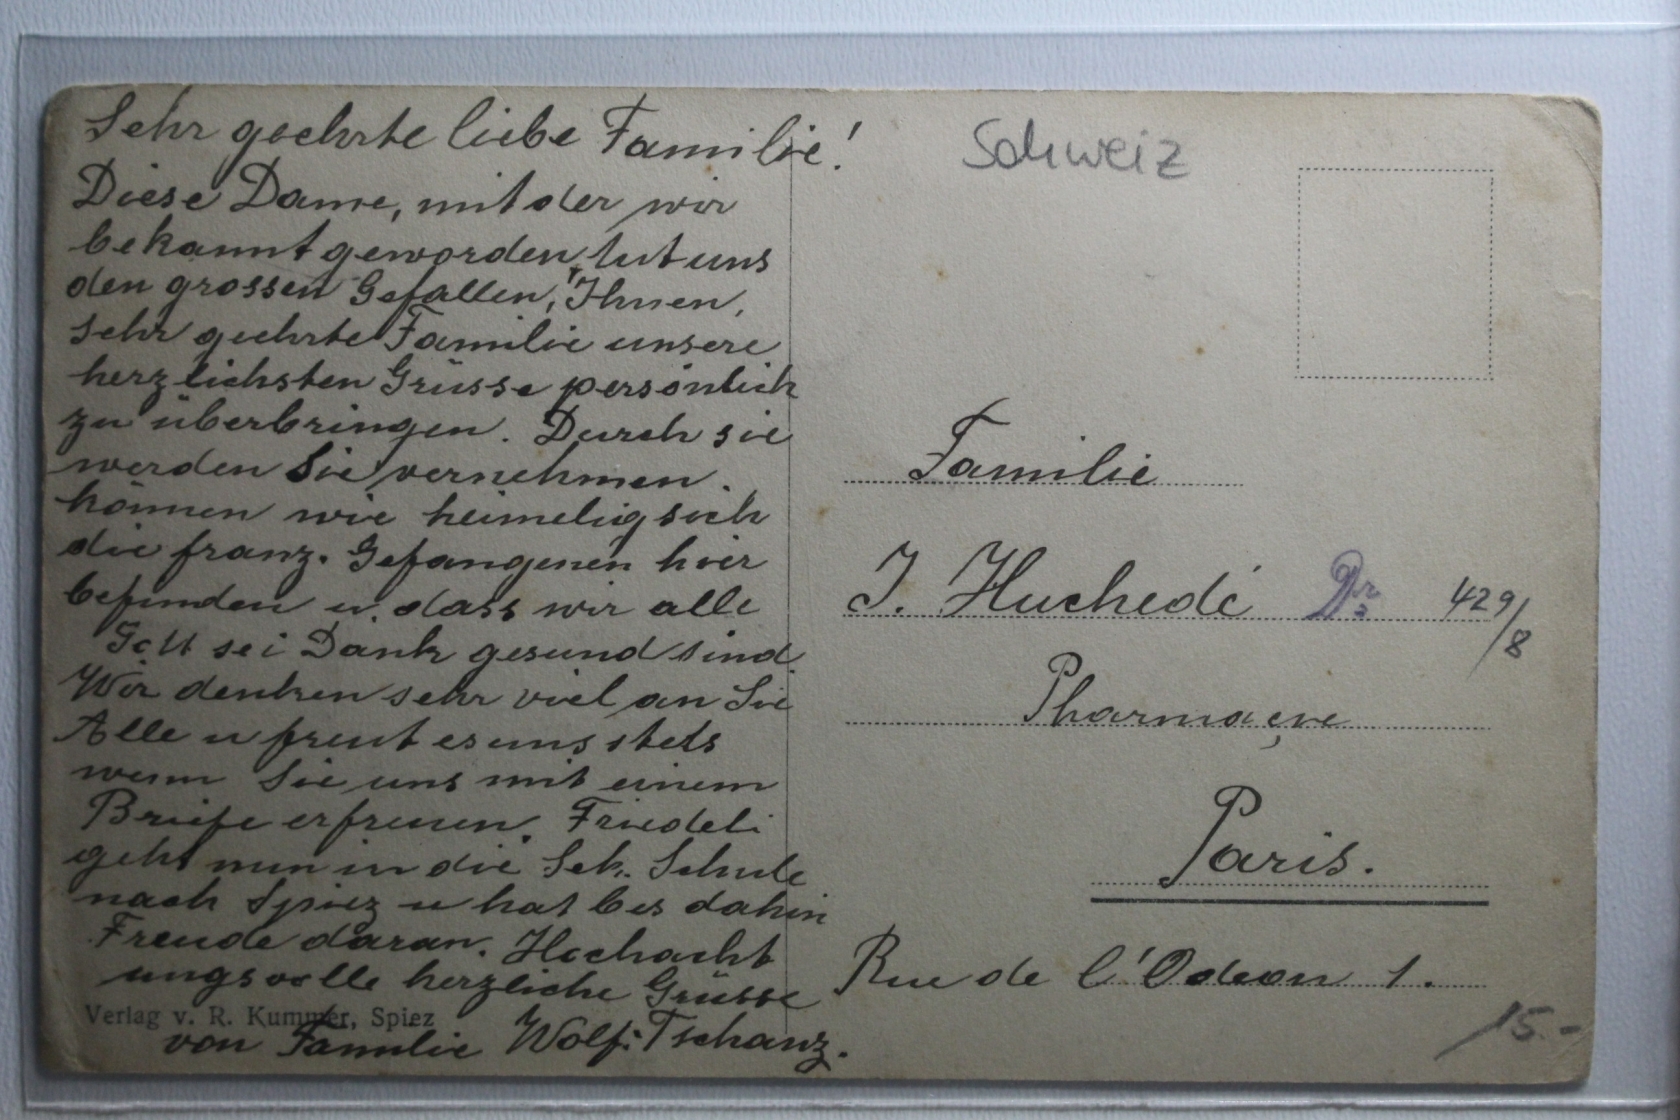 Sehr geehrte liebe Familie!
Diese Dame, mit der wir
bekannt geworden, tut uns
den grossen Gefallen, Ihnen,
sehr geehrte Familie unsere
herzlichsten Grüsse persönlich
zu überbringen. Durch sie
werden Sie vernehmen
können wie heimelig sich
die franz. Gefangenen hier
befinden u. dass wir alle
Gott sei Dank gesund sind.
Wir denken sehr viel an Sie
Alle u freut es uns stets
wenn Sie uns mit einem
Briefe erfreuen. Friedeli
geht nun in die Sek. Schule
nach Spiez u hat bis dahin
Freude daran. Hochacht
ungsvolle herzliche Grüsse
Verlag v. R. Kummer, Spiez
von Familie Wolf-Tschanz.
Schweiz
Familie
J. Huchedé 429/8
Pharmaçie
Paris.
Rue de l'Odeon 1.
15.-